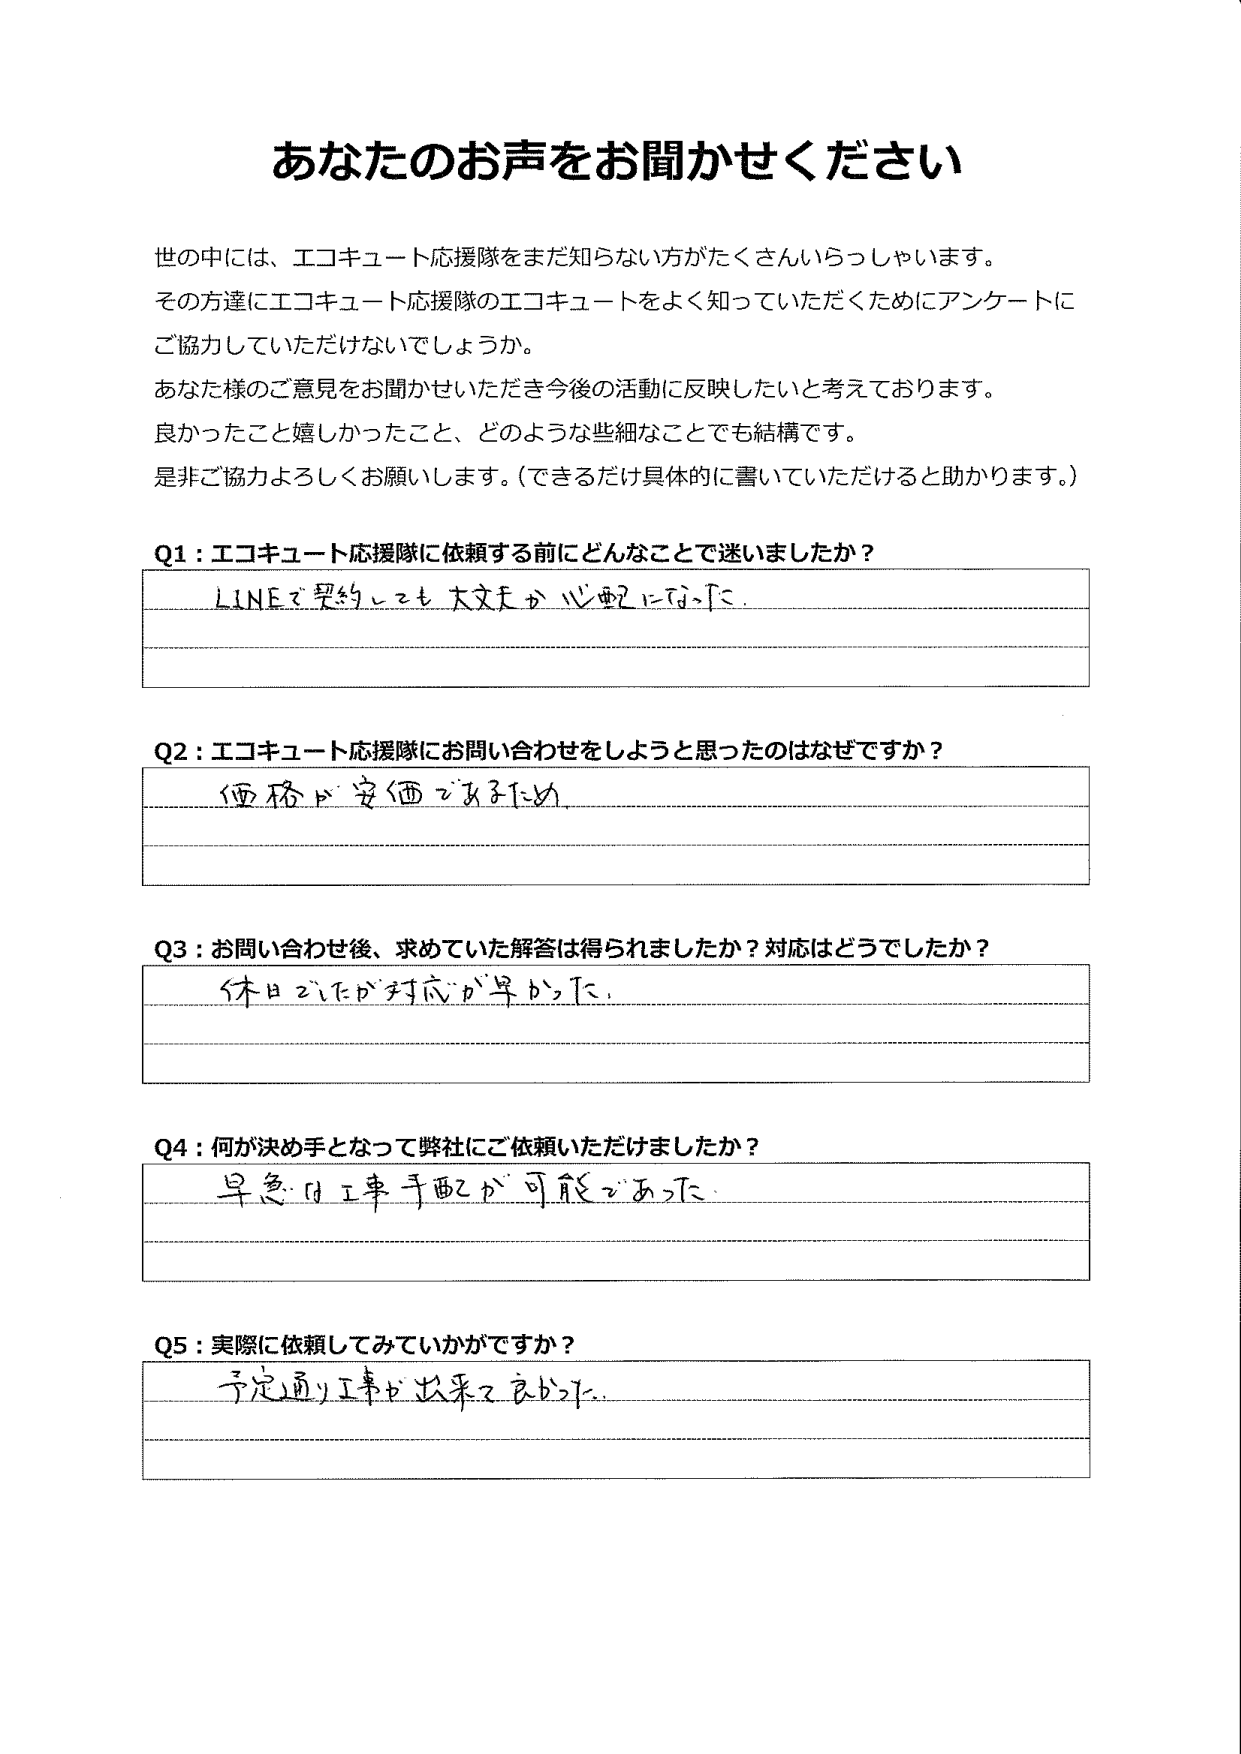 あなたのお声をお聞かせください
世の中には、エコキュート応援隊をまだ知らない方がたくさんいらっしゃいます。
その方達にエコキュート応援隊のエコキュートをよく知っていただくためにアンケートに
ご協力していただけないでしょうか。
あなた様のご意見をお聞かせいただき今後の活動に反映したいと考えております。
良かったこと嬉しかったこと、どのような些細なことでも結構です。
是非ご協力よろしくお願いします。（できるだけ具体的に書いていただけると助かります。）
Q1：エコキュート応援隊に依頼する前にどんなことで迷いましたか？
LINEで契約しても大丈夫か心配になった.
Q2：エコキュート応援隊にお問い合わせをしようと思ったのはなぜですか？
価格が安価であるため
Q3：お問い合わせ後、求めていた解答は得られましたか？対応はどうでしたか？
休日でしたが対応が早かった.
Q4：何が決め手となって弊社にご依頼いただけましたか？
早急な工事手配が可能であった.
Q5：実際に依頼してみていかがですか？
予定通り工事が出来て良かった.